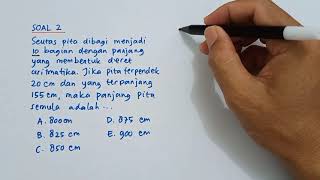 SOAL 2
Seutas pita dibagi menjadi
10 bagian dengan panjang
yang membentuk deret
aritmatika. Jika pita terpendek
20 cm dan yang terpanjang
155 cm, maka panjang pita
semula adalah ...
A. 800 cm D. 875 cm
B. 825 cm E. 900 cm
C. 850 cm